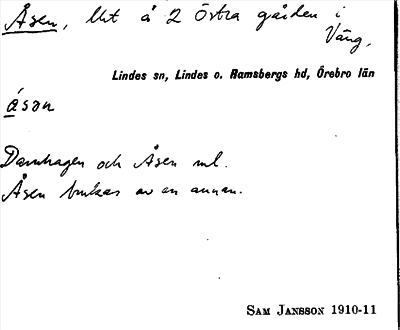 Åsen, lht å 2 Östra gården i
Väng,
Lindes sn, Lindes o. Ramsbergs hd, Örebro län
åsən
och Åsen ml.
Åsen brukas av en annan.
SAM JANSSON 1910-11